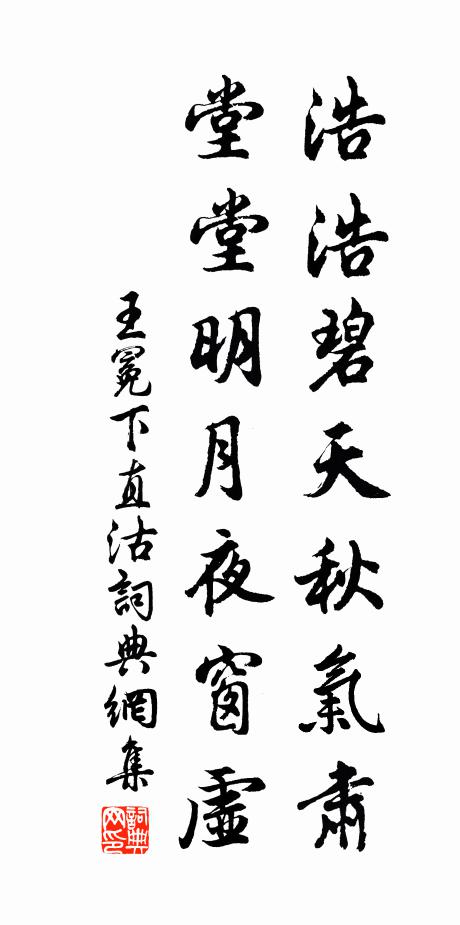 浩浩碧天秋氣肅
堂堂明月夜窗虛
王冕下直沽詞典網集
詞典网印